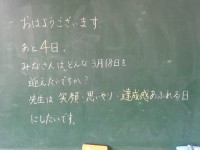 おはようございます
あと4日。
みなさんは、どんな3月18日を
迎えたいですか?
先生は笑顔・思いやり・達成感あふれる日
にしたいです。